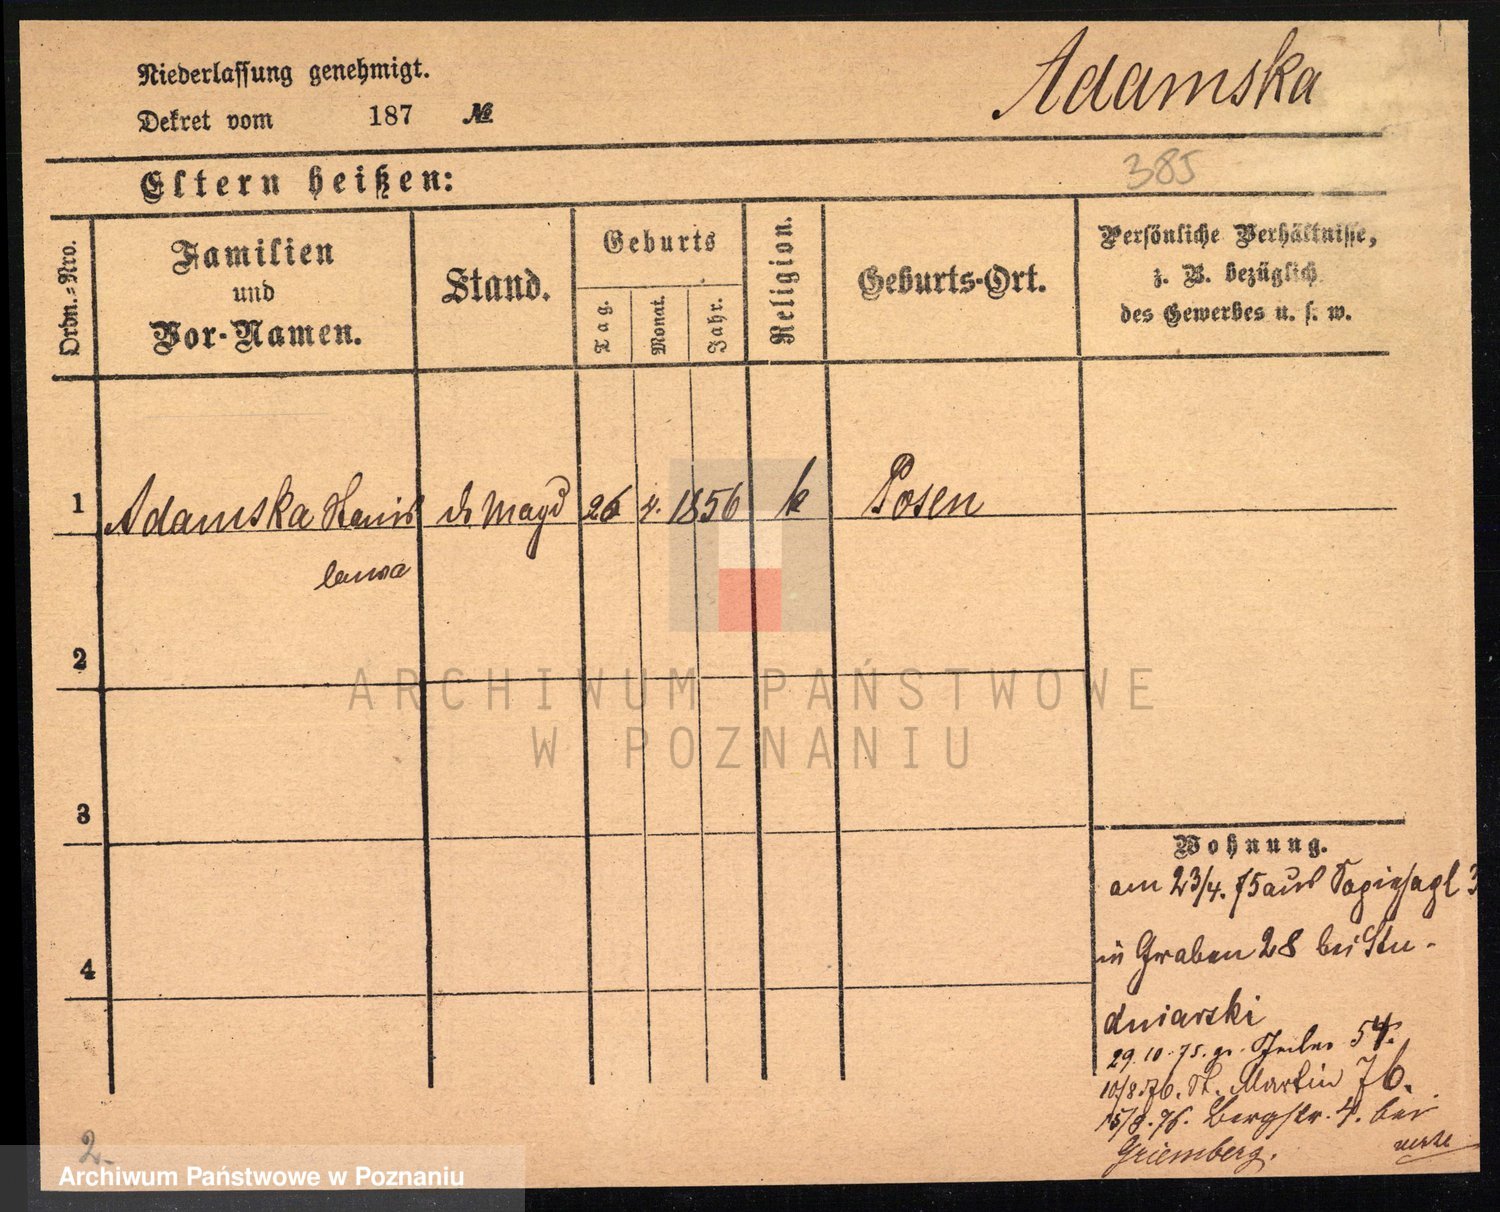 Niederlassung genehmigt.
Dekret vom 187 №
Adamska
385
Eltern heißen:
Ordn.-Nro.
Familien
und
Vor-Namen.
Stand.
Geburts
Tag.
Monat.
Jahr.
Religion.
Geburts-Ort.
Persönliche Verhältnisse,
z. B. bezüglich
des Gewerbes u. s. w.
1 Adamska Stanis d Magd 26 4. 1856 k Posen
lawa
2
3
4
Wohnung.
am 23/4. 75 aus 3
in Graben 28 bei Stu-
dniarski
29.10.75. gr. 54.
10/8.76. St. Martin 76.
15/9.76. Bergstr. 4. bei
Griemberg.
2.
ARCHIWUM PAŃSTWOWE
W POZNANIU
Archiwum Państwowe w Poznaniu